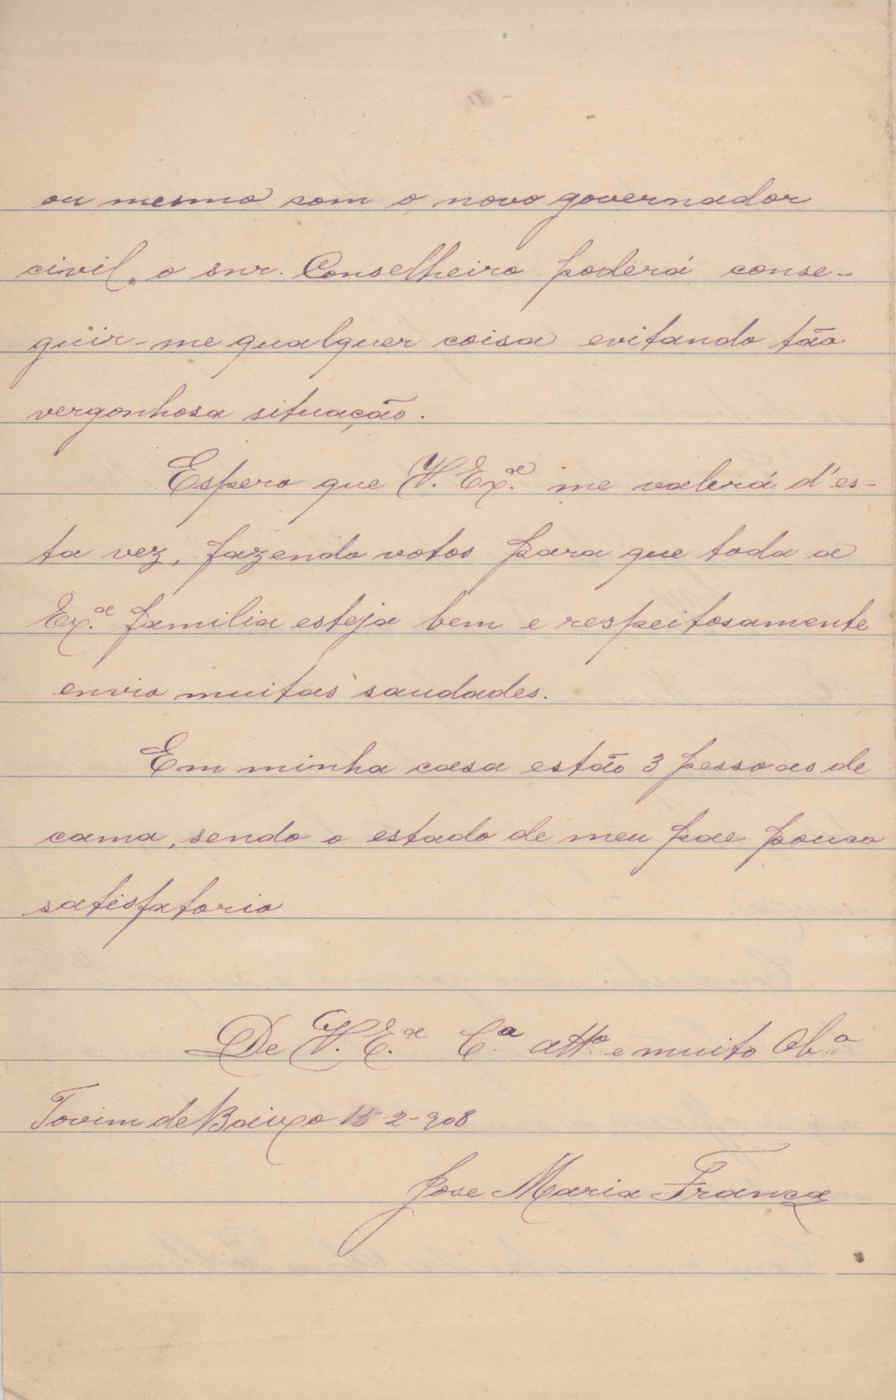 ou mesmo com o novo governador
civil, o snr. Conselheiro poderá conse-
guir-me qualquer coisa evitando tão
vergonhosa situação.
Espero que V. Ex.ª me valerá d'es-
ta vez, fazendo votos para que toda a
Ex.ª familia esteja bem e respeitosamente
envio muitas saudades.
Em minha casa estão 3 pessoas de
cama, sendo o estado de meu pae pouco
satisfatorio
De V. E.ª C.º att.º e muito Ob.º
Tovim de Baixo 15-2-908
Jose Maria França